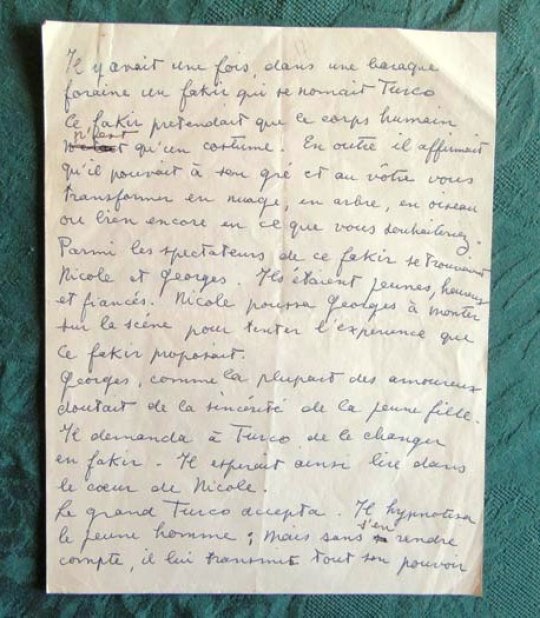 Il y avait une fois, dans une baraque
foraine un fakir qui se nomait Turco
Ce fakir pretendait que le corps humain
n'est qu'un costume. En outre il affirmait
qu'il pouvait à son gré et au vôtre vous
transformer en nuage, en arbre, en oiseau
ou bien encore en ce que vous souhaiteriez.
Parmi les spectateurs de ce fakir se trouvaient
Nicole et Georges. Ils étaient jeunes, heureux
et fiancés. Nicole poussa Georges à monter
sur la scène pour tenter l'expérience que
ce fakir proposait.
Georges, comme la plupart des amoureux
doutait de la sincérité de la jeune fille.
Il demanda à Turco de le changer
en fakir. Il esperait ainsi lire dans
le cœur de Nicole.
Le grand Turco accepta. Il hypnotisa
le jeune homme ; mais sans s'en rendre
compte, il lui transmit tout son pouvoir